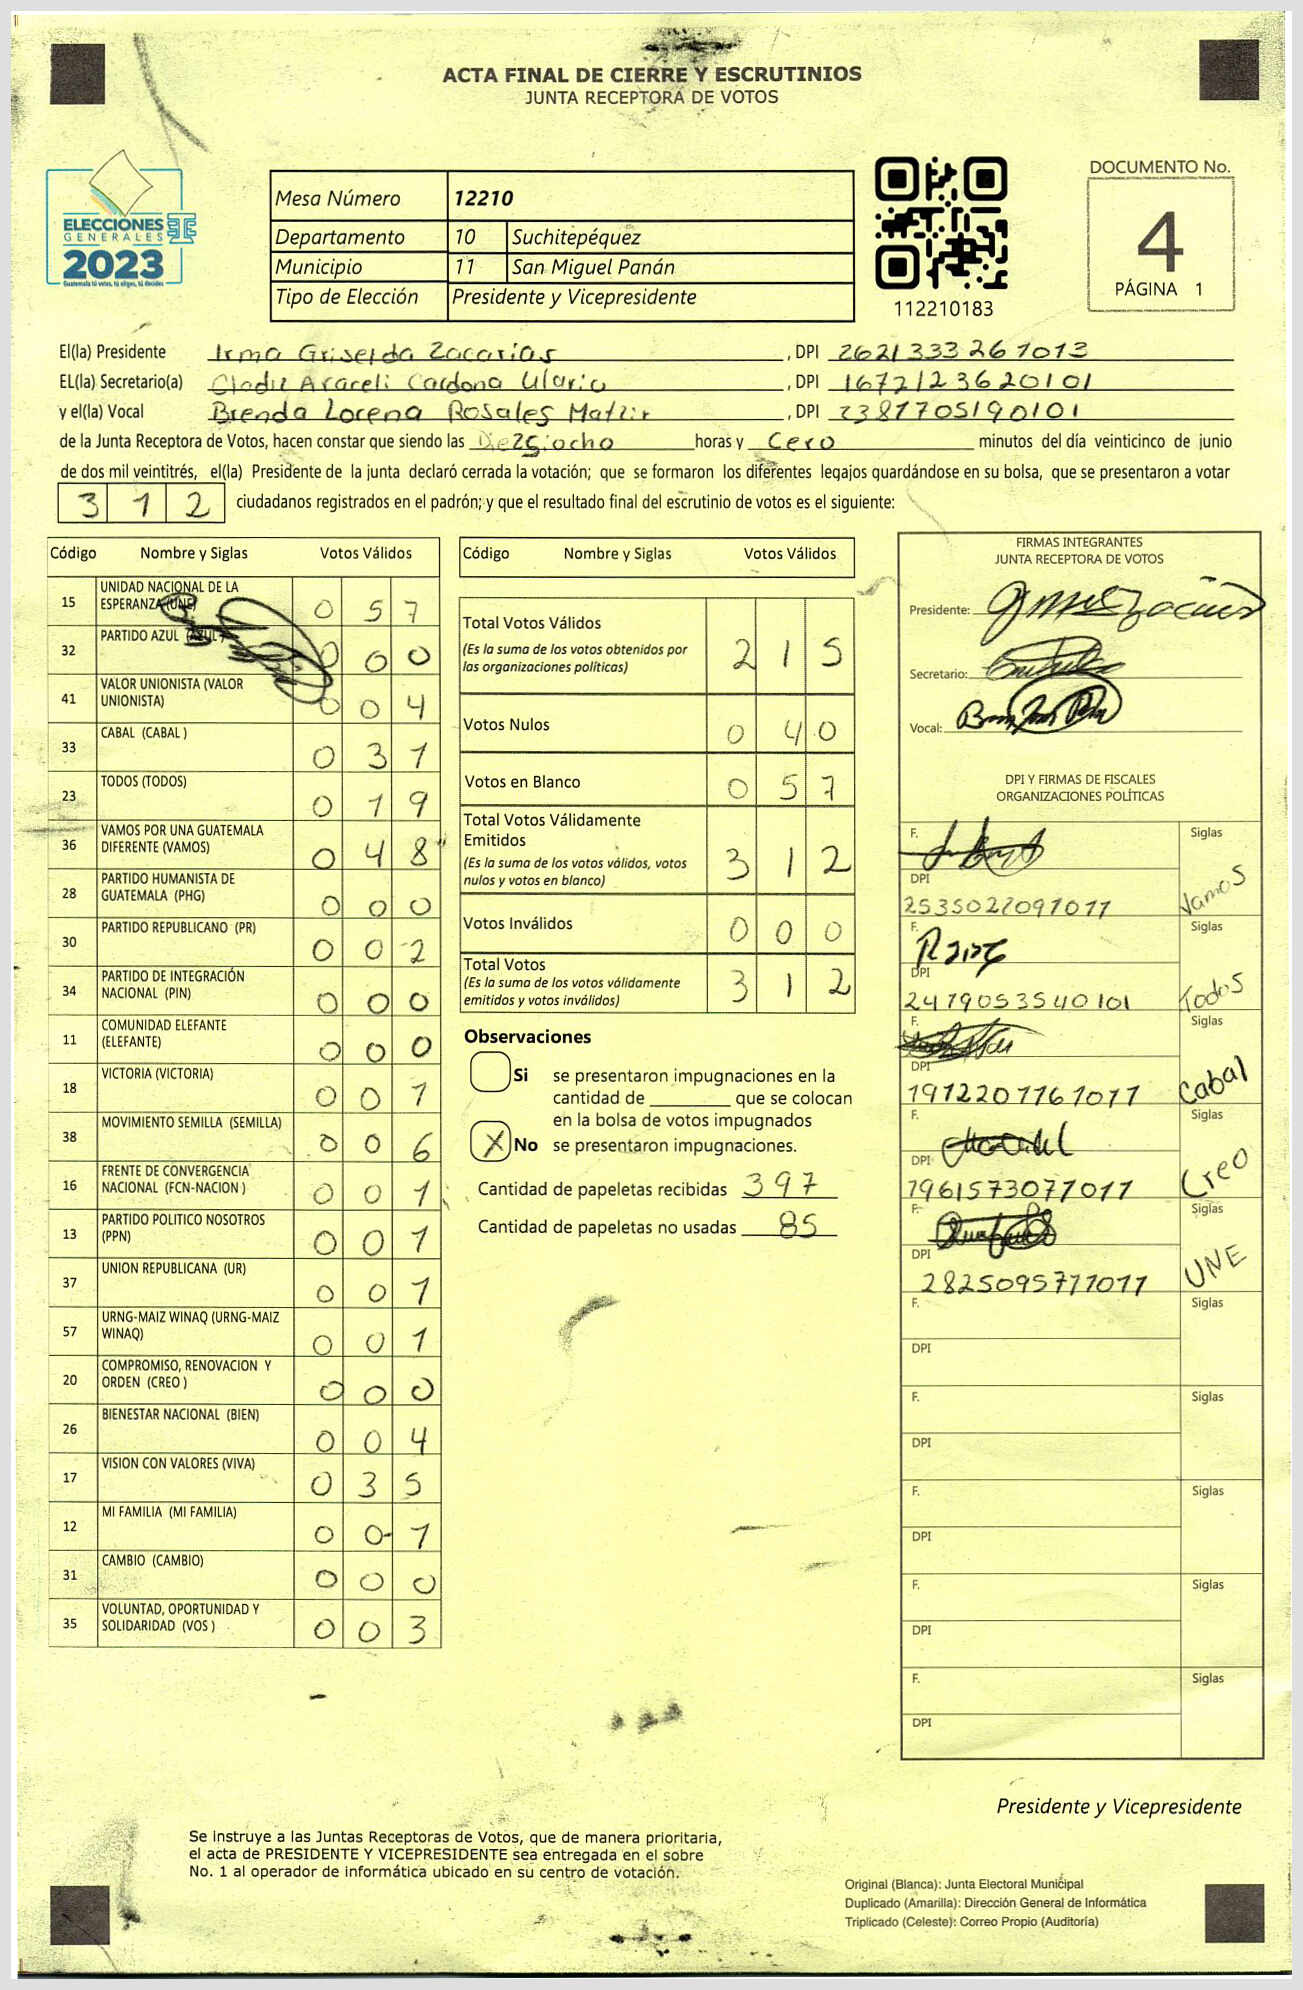 ACTA FINAL DE CIERRE Y ESCRUTINIOS
JUNTA RECEPTORA DE VOTOS
ELECCIONES
GENERALES
2023
Guatemala tú votas, tú eliges, tú decides
Mesa Número 12210
Departamento 10 Suchitepéquez
Municipio 11 San Miguel Panán
Tipo de Elección Presidente y Vicepresidente
112210183
DOCUMENTO No.
4
PÁGINA 1
El(la) Presidente Irma Griselda Zacarías, DPI 2621333261013
EL(la) Secretario(a) Araceli Cardona, DPI 1672123620101
y el(la) Vocal Brenda Lorena Rosales, DPI 2381705190101
de la Junta Receptora de Votos, hacen constar que siendo las Diesiocho horas y Cero minutos del día veinticinco de junio
de dos mil veintitrés, el(la) Presidente de la junta declaró cerrada la votación; que se formaron los diferentes legajos guardándose en su bolsa, que se presentaron a votar
312 ciudadanos registrados en el padrón; y que el resultado final del escrutinio de votos es el siguiente:
Código Nombre y Siglas Votos Válidos
15 UNIDAD NACIONAL DE LA ESPERANZA (UNE) 057
32 PARTIDO AZUL (AZUL) 000
41 VALOR UNIONISTA (VALOR UNIONISTA) 004
33 CABAL (CABAL ) 031
23 TODOS (TODOS) 019
36 VAMOS POR UNA GUATEMALA DIFERENTE (VAMOS) 048
28 PARTIDO HUMANISTA DE GUATEMALA (PHG) 000
30 PARTIDO REPUBLICANO (PR) 002
34 PARTIDO DE INTEGRACIÓN NACIONAL (PIN) 000
11 COMUNIDAD ELEFANTE (ELEFANTE) 000
18 VICTORIA (VICTORIA) 001
38 MOVIMIENTO SEMILLA (SEMILLA) 006
16 FRENTE DE CONVERGENCIA NACIONAL (FCN-NACION ) 001
13 PARTIDO POLITICO NOSOTROS (PPN) 001
37 UNION REPUBLICANA (UR) 001
57 URNG-MAIZ WINAQ (URNG-MAIZ WINAQ) 001
20 COMPROMISO, RENOVACION Y ORDEN (CREO ) 000
26 BIENESTAR NACIONAL (BIEN) 004
17 VISION CON VALORES (VIVA) 035
12 MI FAMILIA (MI FAMILIA) 001
31 CAMBIO (CAMBIO) 000
35 VOLUNTAD, OPORTUNIDAD Y SOLIDARIDAD (VOS ) 003
Código Nombre y Siglas Votos Válidos
Total Votos Válidos 215
(Es la suma de los votos obtenidos por
las organizaciones políticas)
Votos Nulos 040
Votos en Blanco 057
Total Votos Válidamente
Emitidos 312
(Es la suma de los votos válidos, votos
nulos y votos en blanco)
Votos Inválidos 000
Total Votos 312
(Es la suma de los votos válidamente
emitidos y votos inválidos)
Observaciones
Si se presentaron impugnaciones en la
cantidad de ________ que se colocan
en la bolsa de votos impugnados
X No se presentaron impugnaciones.
Cantidad de papeletas recibidas 397
Cantidad de papeletas no usadas 85
FIRMAS INTEGRANTES
JUNTA RECEPTORA DE VOTOS
Presidente:
Secretario:
Vocal:
DPI Y FIRMAS DE FISCALES
ORGANIZACIONES POLÍTICAS
F. Siglas
DPI Vamos
2535022091011
F. Siglas
DPI Todos
2479053540101
F. Siglas
DPI Cabal
1912201761011
F. Siglas
DPI Creo
1961573071011
F. Siglas
DPI UNE
2825095711011
F. Siglas
DPI
F. Siglas
DPI
F. Siglas
DPI
F. Siglas
DPI
F. Siglas
DPI
Presidente y Vicepresidente
Se instruye a las Juntas Receptoras de Votos, que de manera prioritaria,
el acta de PRESIDENTE Y VICEPRESIDENTE sea entregada en el sobre
No. 1 al operador de informática ubicado en su centro de votación.
Original (Blanca): Junta Electoral Municipal
Duplicado (Amarilla): Dirección General de Informática
Triplicado (Celeste): Correo Propio (Auditoría)